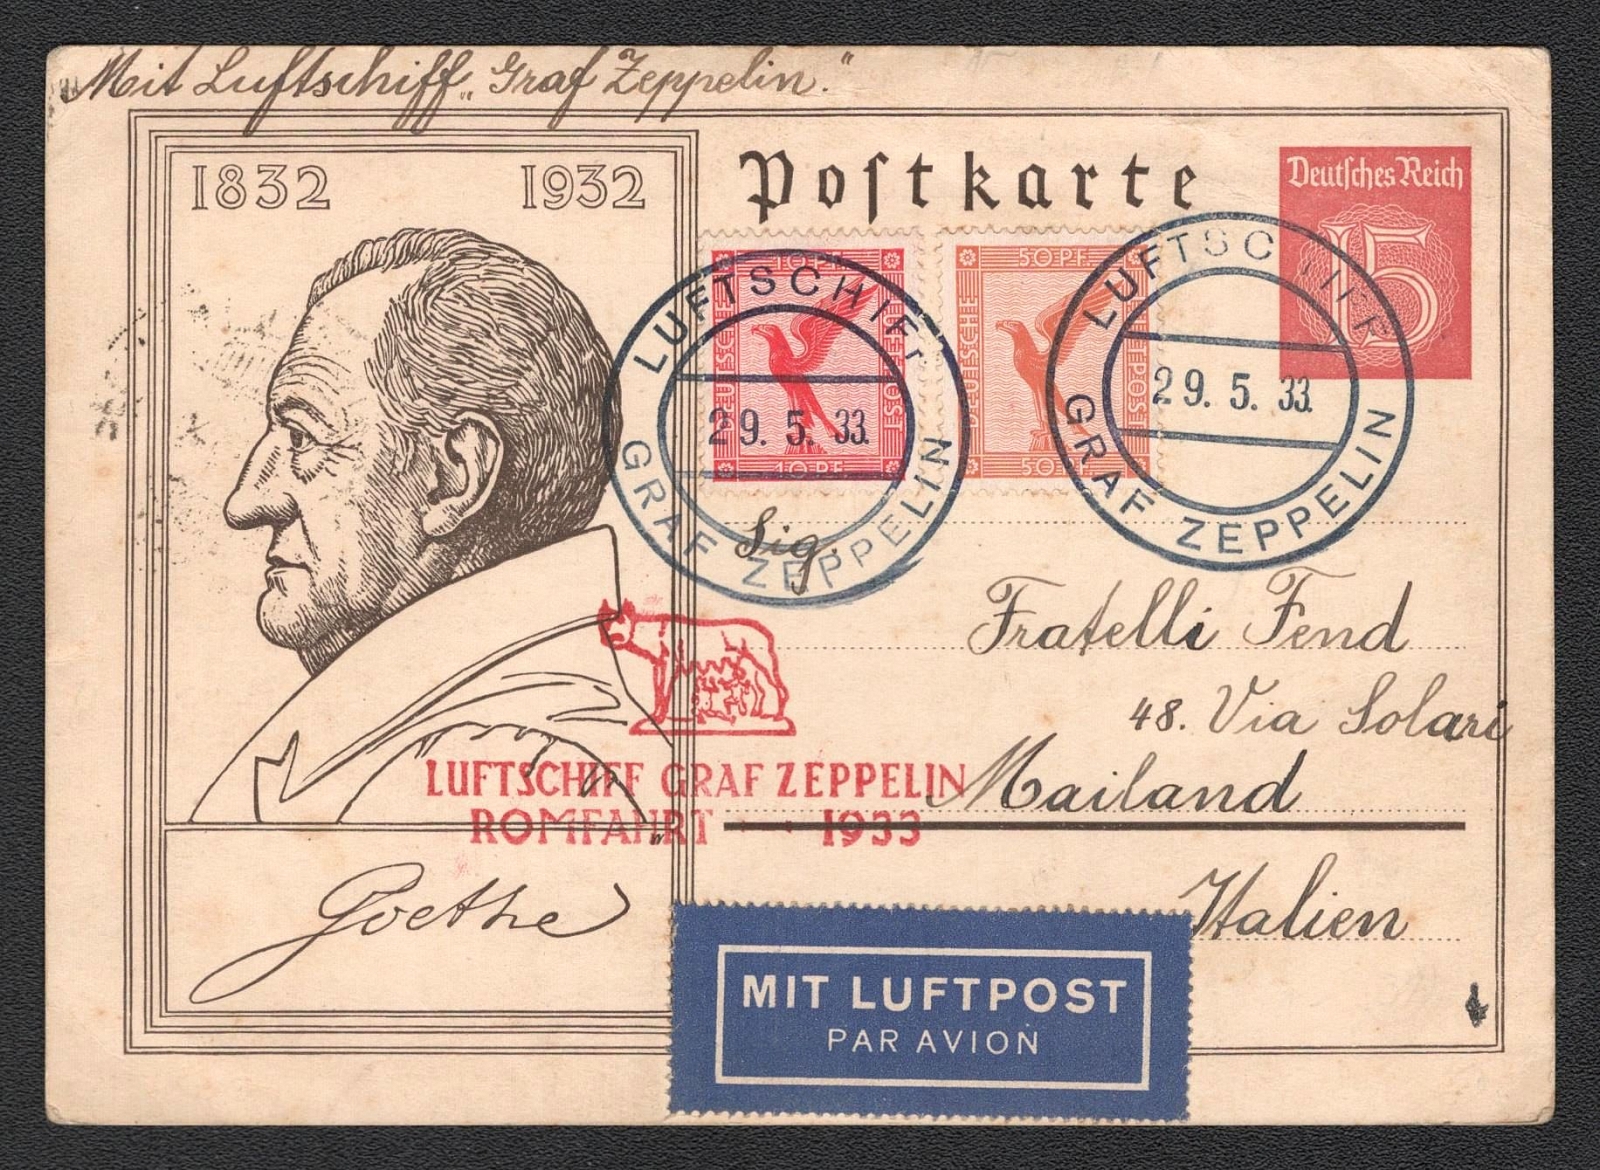 Mit Luftschiff „Graf Zeppelin."
1832 1932
Postkarte
Deutsches Reich
15
10 PF
DEUTSCHE
FLUGPOST
10 PF
50 PF
DEUTSCHE
FLUGPOST
50 PF
LUFTSCHIFF
29. 5. 33.
GRAF ZEPPELIN
LUFTSCHIFF
29. 5. 33.
GRAF ZEPPELIN
Sig.
Fratelli Fend
48. Via Solari
Mailand
Italien
LUFTSCHIFF GRAF ZEPPELIN
ROMFAHRT 1933
Goethe
MIT LUFTPOST
PAR AVION